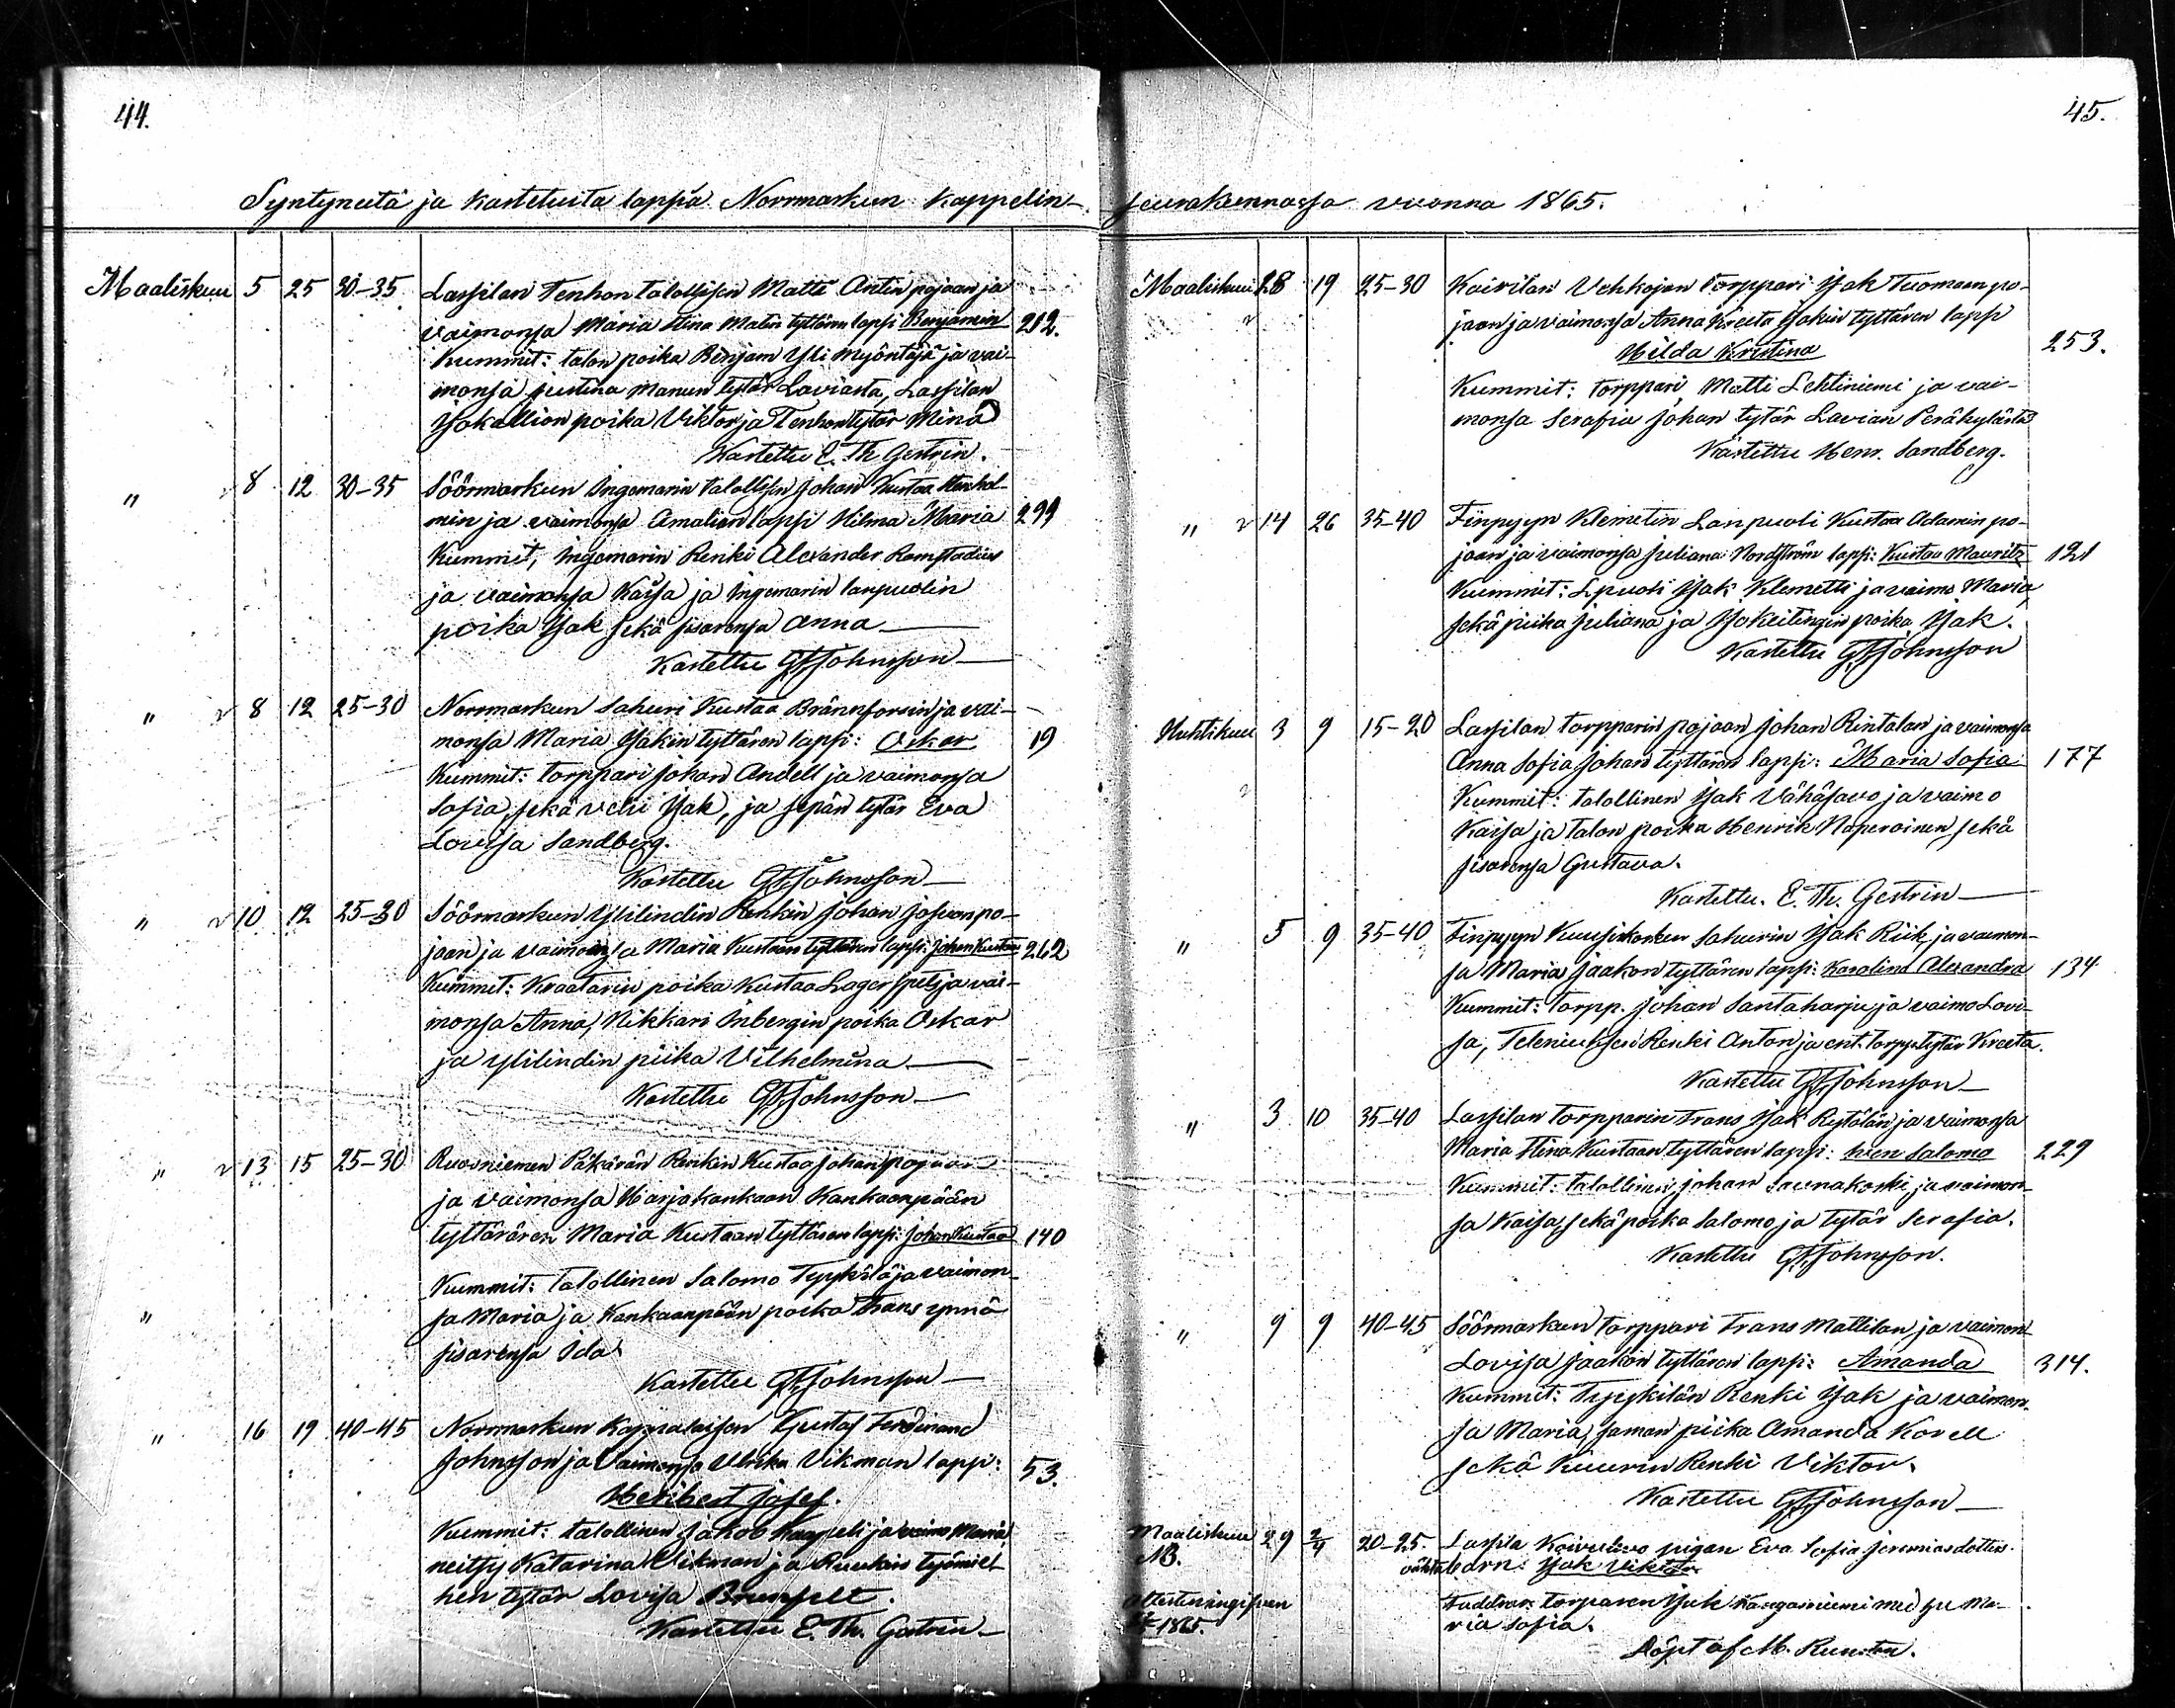 44.
Syntyneitä ja kastetuita lapsia Norrmarkun kappelin-
Maaliskuu 5 25 30-35 Lassilan Tenhon talollisen Matti Antin pojan ja
vaimonsa Maria Stina Matin tyttären lapsi Benjamin 212.
Kummit: talon poika Benjam Yli Myöntäjä ja vai-
monsa Justina Manun tytär Laviasta, Lassilan
Isokallion poika Viktor ja Tenhon tytär Mina
Kastettu E. Th Gestrin.
" 8 12 30-35 Söörmarkun Ingemarin talollisen Johan Kustaa Stenhol-
min ja vaimonsa Amalian lapsi Hilma Maria 299
Kummit, Ingemarin Renki Alexander Ramstadius
ja vaimonsa Kaisa ja Ingemarin lanpuolin
poika Isak sekä sisarensa Anna
Kastettu G F Johnsson
" 8 12 25-30 Norrmarkun Sahuri Kustaa Brännforsin ja vai-
monsa Maria Isakin tyttären lapsi: Oskar 19
Kummit: torppari Johan Andell ja vaimonsa
Sofia, sekä veli Isak, ja sepän tytär Eva
Lovisa Sandberg.
Kastettu G F Johnsson
" 10 12 25-30 Söörmarkun Ylilindin Renkin Johan Josuan po-
jan ja vaimonsa Maria Kustaan tyttären lapsi: Johan Kustaa 262
Kummit: Kraatarin poika Kustaa Lagerspets ja vai-
monsa Anna, Nikkari Inbergin poika Oskar
ja Ylilindin piika Vilhelmina
Kastettu G F Johnsson
" 13 15 25-30 Ruosniemen Päkärän Renkin Kustaa Johan pojan
ja vaimonsa Harjakankaan Kankaanpään
tyttärären Maria Kustaan tyttären lapsi: Johan Kustaa 140
Kummit: talollinen Salomo Tyykilä ja vaimon-
" sa Maria ja Kankaanpään poika Frans ynnä
sisarensa Ida
Kastettu G F Johnsson
" 16 19 40-45 Norrmarkun Kappalaisen Gustaf Ferdinand
Johnsson ja Vaimonsa Ulrika Vikman lapsi: 53.
Heribert Josef.
Kummit: talollinen Jakob Kaapeli ja vaimo Maria,
neitsy Katarina Vikman ja Ruukin työmie-
hen tytär Lovisa Brunfelt.
Kastettu E. Th. Gestrin
45.
seurakunnassa vuonna 1865.
Maaliskuu 28 19 25-30 Kairilan Vehkojan torppari Isak Tuomaan po-
jaan ja vaimonsa Anna Kreeta Isakin tyttären lapsi
Hilda Kristina 253.
Kummit: torppari, Matti Lehtiniemi ja vai-
monsa Serafia Johan tytär Lavian Peräkylästä
Kastettu Henr. Sandberg.
" 14 26 35-40 Finpyyn Klemetin Lanpuoli Kustaa Adamin po-
jaan ja vaimonsa Juliana Nordström lapsi: Kustaa Mauritz 121
Kummit: Lpuoli Isak Klemetti ja vaimo Maria,
sekä piika Juliana ja Isokeitingin poika Isak.
Kastettu G F Johnsson
Huhtikuu 3 9 15-20 Lassilan torpparin pojaan Johan Rintalan ja vaimonsa
Anna Sofia Johan tyttären lapsi: Maria Sofia 177
Kummit: talollinen Isak Vähäsavo ja vaimo
Kaisa ja talon poika Henrik Naperoinen sekä
sisarensa Gustava.
Kastettu. E. Th. Gestrin
" 5 9 35-40 Finpyyn Kuusikosken Sahurin Isak Riik, ja vaimon-
sa Maria Jaakon tyttären lapsi: Karolina Alexandra 134
Kummit: torpp. Johan Santaharju ja vaimo Lovi-
sa, Teleniuksen Renki Anton ja ent. torpp. tytär Kreeta.
Kastettu G F Johnsson
" 3 10 35-40 Lassilan torpparin Frans Isak Rystölän ja vaimonsa
Maria Stina Kustaan tyttären lapsi: Iven Salomo 229
Kummit: talollinen Johan Saunakoski, ja vaimon-
sa Kaisa, sekä poika Salomo ja tytär Serafia.
Kastettu G F Johnsson.
" 9 9 40-45 Söörmarkun torppari Frans Mattilan ja vaimon
Lovisa Jaakon tyttären lapsi: Amanda 314.
Kummit: Tyyskilän Renki Isak ja vaimon-
sa Maria, saman piika Amanda Korell
sekä Kuurin Renki Viktor.
Kastettu G F Johnsson
Maaliskuu 29 2/4 20-25. Lassila Koivuluo pigan Eva Sofia Jeremiasdotters
NB. oäkta barn: Isak Viktor
Faddrar: torparen Isak Kangasniemi med hu Ma-
1865. ria Sofia.
Döpt af M. Ruusta.